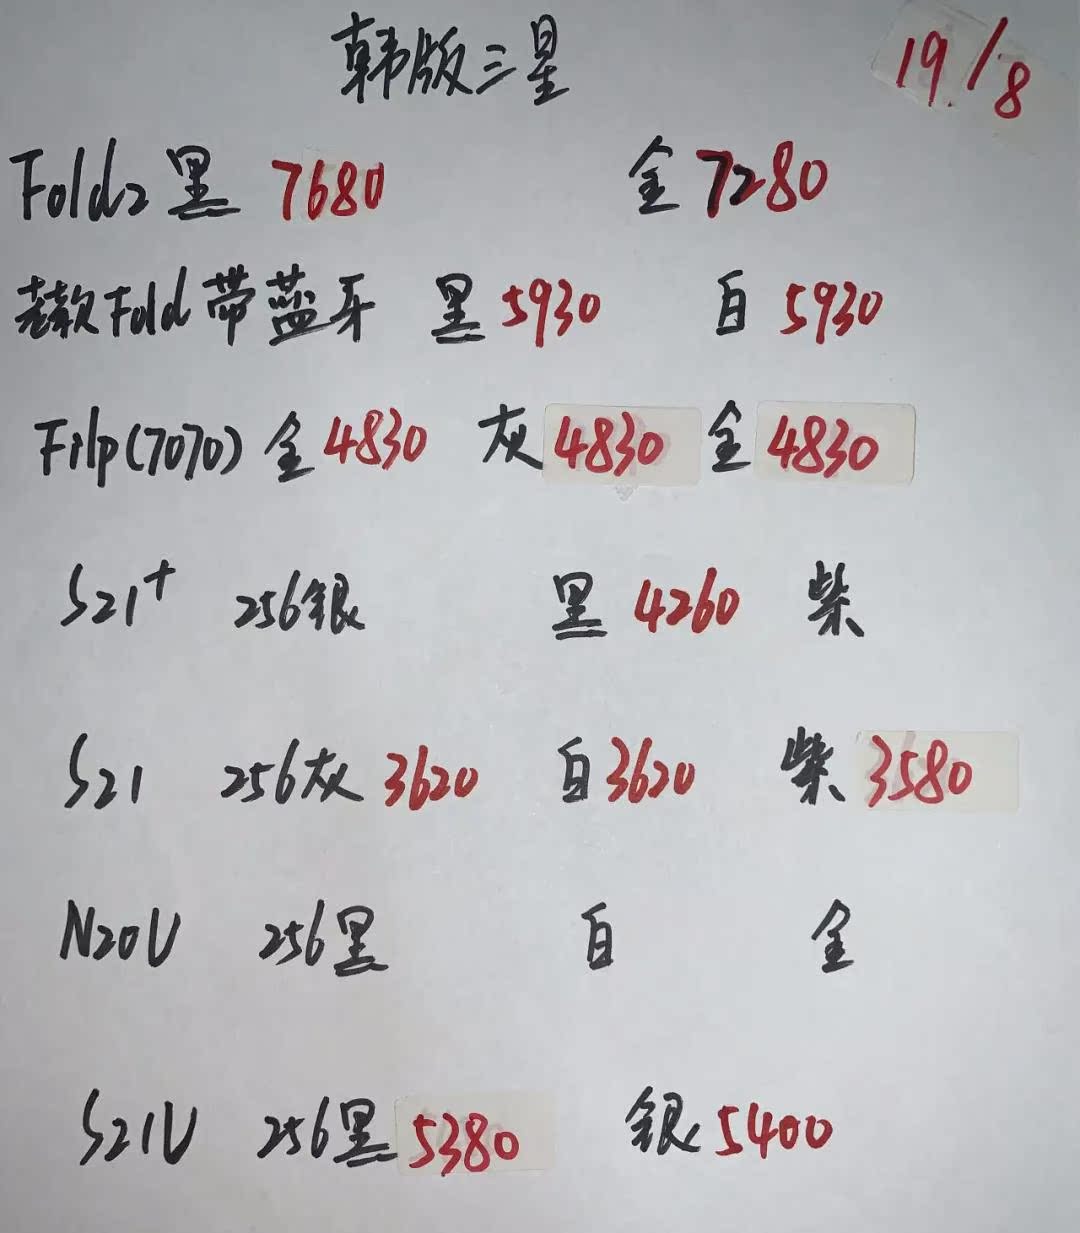 韩版三星 19/8
Fold2 黑 7680 金 7280
老款Fold 带蓝牙 黑 5930 白 5930
Filp(7070) 金 4830 灰 4830 金 4830
S21+ 256银 黑 4260 柴
S21 256灰 3620 白 3620 柴 3580
N20U 256黑 白 金
S21U 256黑 5380 银 5400